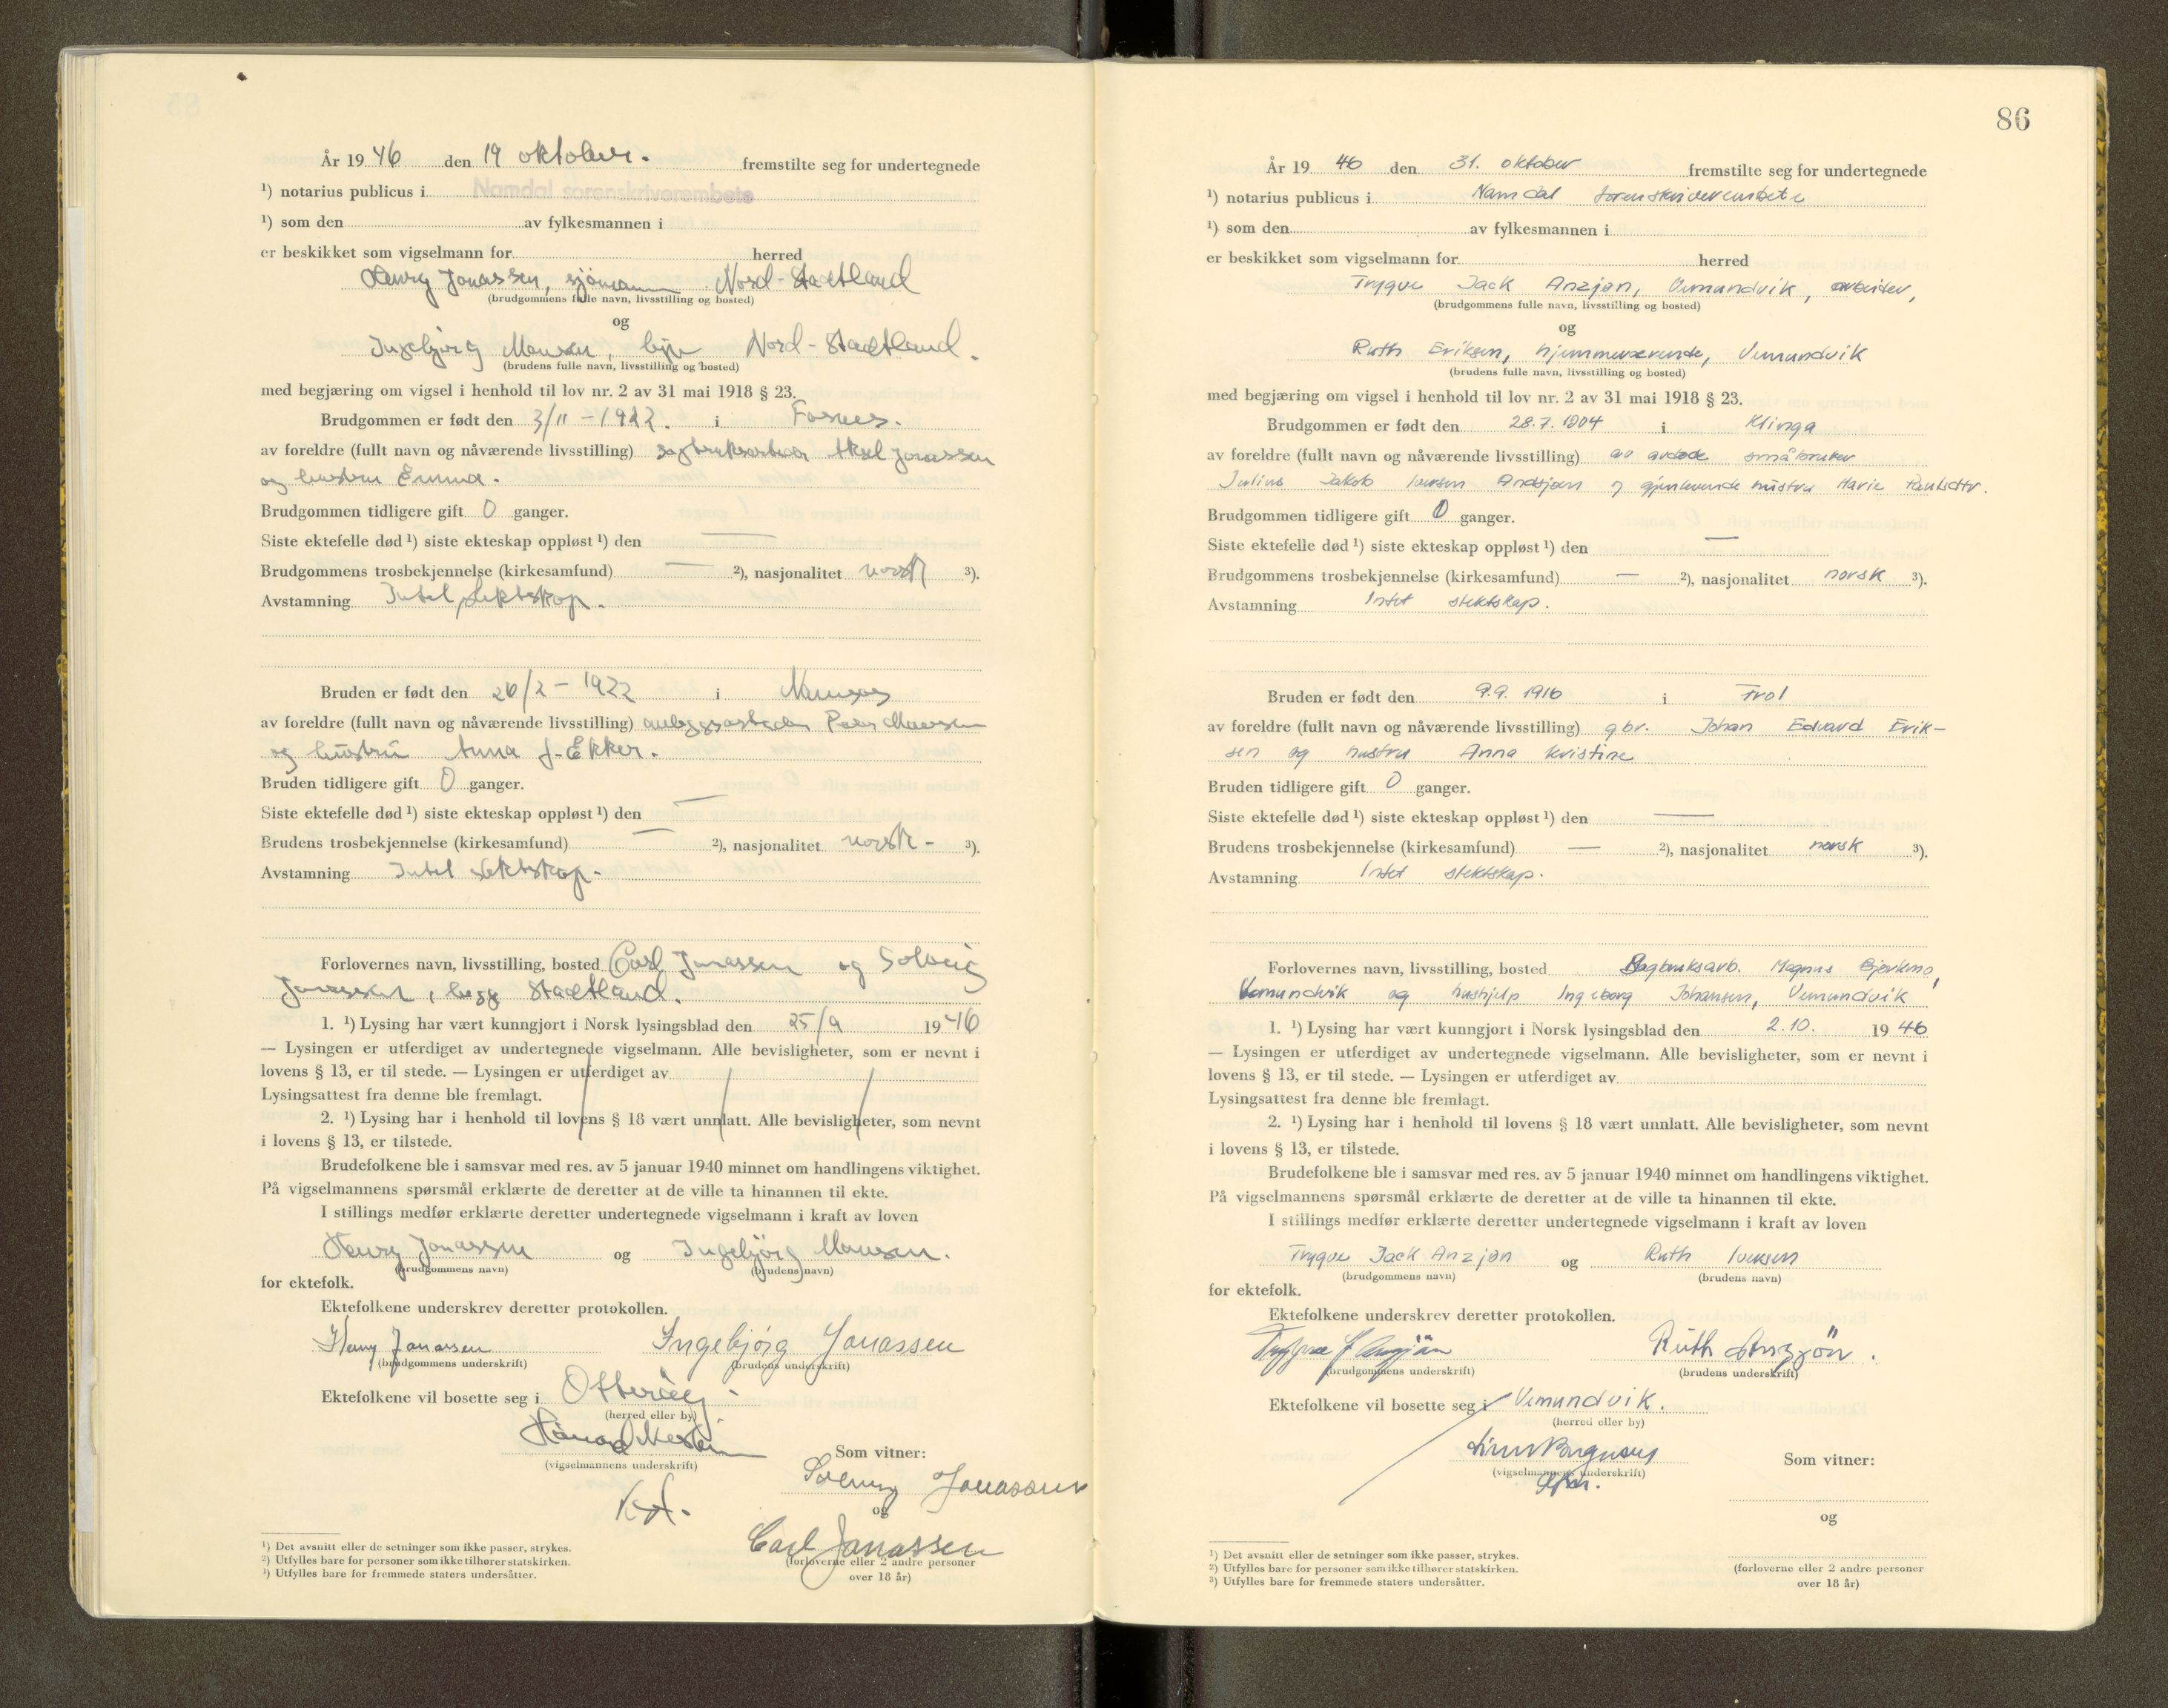 År 1946 den 19 oktober. fremstilte seg for undertegnede
¹) notarius publicus i Namdal sorenskriverembete
¹) som den av fylkesmannen i
er beskikket som vigselmann for herred
Henry Jonassen, sjömann Nord-Statland
(brudgommens fulle navn, livsstilling og bosted)
og
Ingebjörg Mausen, Nord-Statland.
(brudens fulle navn, livsstilling og bosted)
med begjæring om vigsel i henhold til lov nr. 2 av 31 mai 1918 § 23.
Brudgommen er født den 3/11 - 1922. i Fosnes.
av foreldre (fullt navn og nåværende livsstilling) sagbruksarbeider Aksel Jonassen
og hustru Emma.
Brudgommen tidligere gift 0 ganger.
Siste ektefelle død ¹) siste ekteskap oppløst ¹) den —
Brudgommens trosbekjennelse (kirkesamfund) — ²), nasjonalitet norsk ³).
Avstamning Intet slektskap.
Bruden er født den 26/2 - 1922 i Namsos
av foreldre (fullt navn og nåværende livsstilling) anleggsarbeider Peder Mausen
og hustru Anna J. Ekker.
Bruden tidligere gift 0 ganger.
Siste ektefelle død ¹) siste ekteskap oppløst ¹) den —
Brudens trosbekjennelse (kirkesamfund) — ²), nasjonalitet norsk - ³).
Avstamning Intet slektskap.
Forlovernes navn, livsstilling, bosted Carl Jonassen og Solveig
Jonassen, begge Statland.
1. ¹) Lysing har vært kunngjort i Norsk lysingsblad den 25/9 1946
— Lysingen er utferdiget av undertegnede vigselmann. Alle bevisligheter, som er nevnt i
lovens § 13, er til stede. — Lysingen er utferdiget av
Lysingsattest fra denne ble fremlagt.
2. ¹) Lysing har i henhold til lovens § 18 vært unnlatt. Alle bevisligheter, som nevnt
i lovens § 13, er tilstede.
Brudefolkene ble i samsvar med res. av 5 januar 1940 minnet om handlingens viktighet.
På vigselmannens spørsmål erklærte de deretter at de ville ta hinannen til ekte.
I stillings medfør erklærte deretter undertegnede vigselmann i kraft av loven
Henry Jonassen og Ingebjörg Mausen.
(brudgommens navn) (brudens navn)
for ektefolk.
Ektefolkene underskrev deretter protokollen.
Henry Jonassen Ingebjörg Jonassen
(brudgommens underskrift) (brudens underskrift)
Ektefolkene vil bosette seg i Otteröy.
(herred eller by)
(vigselmannens underskrift)
Som vitner:
Solveig Jonassen
og
Carl Jonassen
(forloverne eller 2 andre personer
over 18 år)
¹) Det avsnitt eller de setninger som ikke passer, strykes.
²) Utfylles bare for personer som ikke tilhører statskirken.
³) Utfylles bare for fremmede staters undersåtter.
86
År 1946 den 31. oktober fremstilte seg for undertegnede
¹) notarius publicus i Namdal sorenskriverembete
¹) som den av fylkesmannen i
er beskikket som vigselmann for herred
Trygve Jack Anzjøn, Vemundvik, arbeider,
(brudgommens fulle navn, livsstilling og bosted)
og
Ruth Eriksen, hjemmeværende, Vemundvik
(brudens fulle navn, livsstilling og bosted)
med begjæring om vigsel i henhold til lov nr. 2 av 31 mai 1918 § 23.
Brudgommen er født den 28.7.1904 i Klinga
av foreldre (fullt navn og nåværende livsstilling) av avdøde småbruker
Julius Jakob Iversen Andsjøen og gjenlevende hustru Marie
Brudgommen tidligere gift 0 ganger.
Siste ektefelle død ¹) siste ekteskap oppløst ¹) den —
Brudgommens trosbekjennelse (kirkesamfund) — ²), nasjonalitet norsk ³).
Avstamning Intet slektskap.
Bruden er født den 9.9.1916 i Frol
av foreldre (fullt navn og nåværende livsstilling) gbr. Johan Edvard Erik-
sen og hustru Anna Kristine
Bruden tidligere gift 0 ganger.
Siste ektefelle død ¹) siste ekteskap oppløst ¹) den —
Brudens trosbekjennelse (kirkesamfund) — ²), nasjonalitet norsk ³).
Avstamning Intet slektskap.
Forlovernes navn, livsstilling, bosted Sagbruksarb. Magnus Bjørkmo,
Vemundvik og hushjelp Ingeborg Johansen, Vemundvik
1. ¹) Lysing har vært kunngjort i Norsk lysingsblad den 2.10. 1946
— Lysingen er utferdiget av undertegnede vigselmann. Alle bevisligheter, som er nevnt i
lovens § 13, er til stede. — Lysingen er utferdiget av
Lysingsattest fra denne ble fremlagt.
2. ¹) Lysing har i henhold til lovens § 18 vært unnlatt. Alle bevisligheter, som nevnt
i lovens § 13, er tilstede.
Brudefolkene ble i samsvar med res. av 5 januar 1940 minnet om handlingens viktighet.
På vigselmannens spørsmål erklærte de deretter at de ville ta hinannen til ekte.
I stillings medfør erklærte deretter undertegnede vigselmann i kraft av loven
Trygve Jack Anzjøn og Ruth Iversen
(brudgommens navn) (brudens navn)
for ektefolk.
Ektefolkene underskrev deretter protokollen.
Trygve J Anzjön Ruth Anzjön.
(brudgommens underskrift) (brudens underskrift)
Ektefolkene vil bosette seg i Vemundvik.
(herred eller by)
(vigselmannens underskrift)
Som vitner:
og
(forloverne eller 2 andre personer
over 18 år)
¹) Det avsnitt eller de setninger som ikke passer, strykes.
²) Utfylles bare for personer som ikke tilhører statskirken.
³) Utfylles bare for fremmede staters undersåtter.